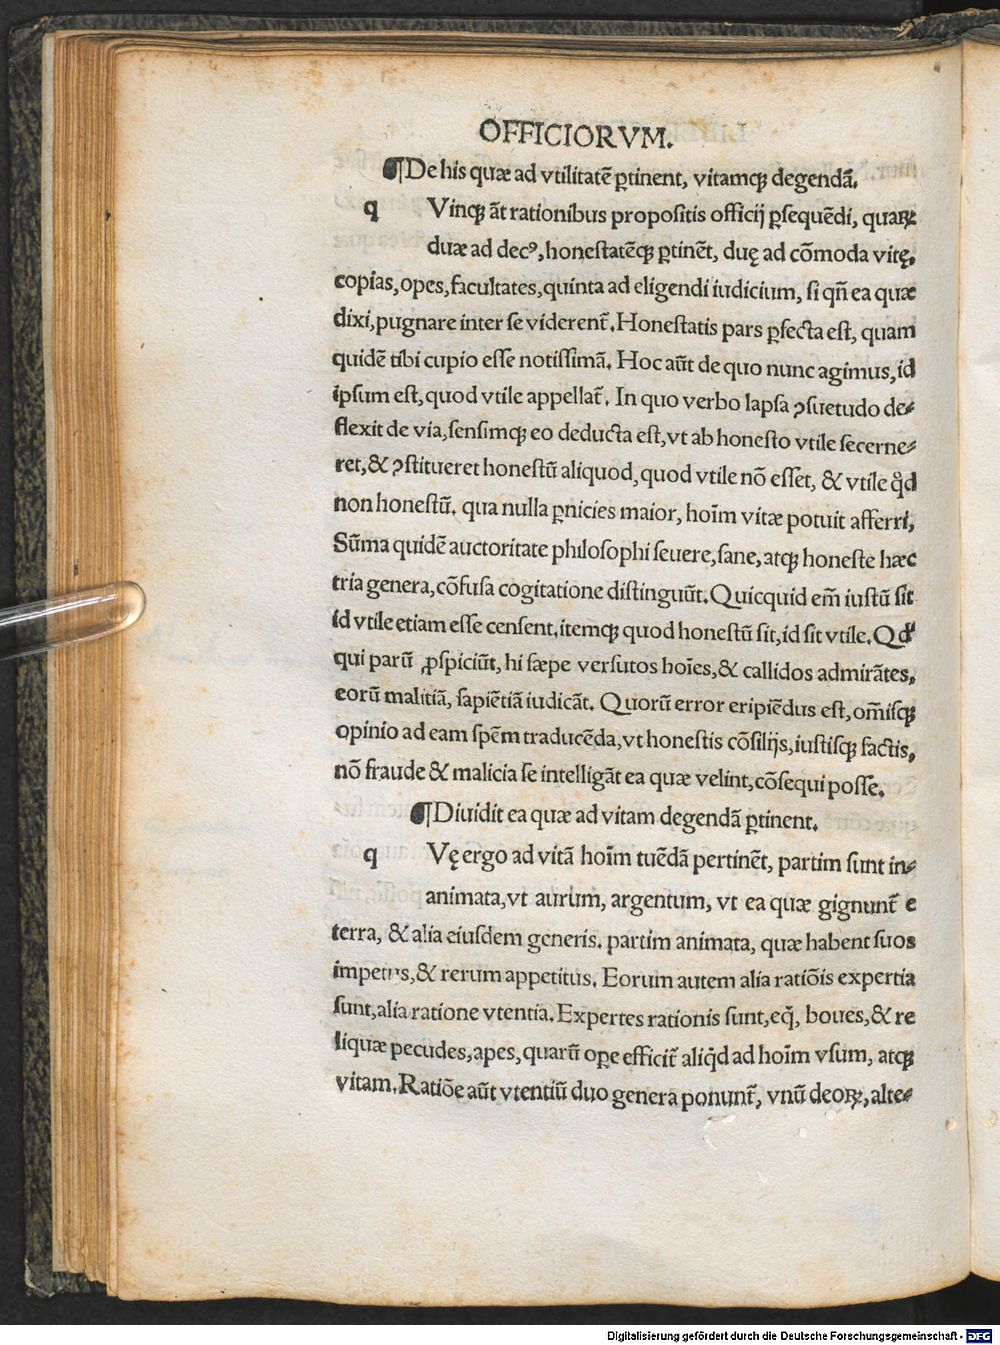 OFFICIORVM.
¶De his quæ ad vtilitatẽ ꝑtinent, vitamqꝫ degendã.
q Vinqꝫ ãt rationibus propositis officij ꝑsequẽdi, quaꝝ
duæ ad decꝰ, honestatẽqꝫ ꝑtinẽt, duę ad cõmoda vitę,
copias, opes, facultates, quinta ad eligendi iudicium, si qñ ea quæ
dixi, pugnare inter se viderent̃. Honestatis pars ꝑfecta est, quam
quidẽ tibi cupio esse notissimã. Hoc aũt de quo nunc agimus, id
ipsum est, quod vtile appellat̃. In quo verbo lapsa ꝯsuetudo de-
flexit de via, sensimqꝫ eo deducta est, vt ab honesto vtile secerne-
ret, & ꝯstitueret honestũ aliquod, quod vtile nõ esset, & vtile qͦd
non honestũ. qua nulla ꝑnicies maior, hoĩm vitæ potuit afferri,
Sũma quidẽ auctoritate philosophi seuere, sane, atqꝫ honeste hæc
tria genera, cõfusa cogitatione distinguũt. Quicquid em̃ iustũ sit
id vtile etiam esse censent. itemqꝫ quod honestũ sit, id sit vtile. Qd'
qui parũ ꝓspiciũt, hi sæpe versutos hoĩes, & callidos admirãtes,
eorũ malitiã, sapiẽtiã iudicãt. Quorũ error eripiẽdus est, om̃isqꝫ
opinio ad eam spẽm traducẽda, vt honestis cõsilijs, iustisqꝫ factis,
nõ fraude & malicia se intelligãt ea quæ velint, cõsequi posse.
¶Diuidit ea quæ ad vitam degendã ꝑtinent.
q Vę ergo ad vitã hoĩm tuẽdã pertinẽt, partim sunt in-
animata, vt aurum, argentum, vt ea quæ gignunt̃ e
terra, & alia eiusdem generis. partim animata, quæ habent suos
impetus, & rerum appetitus. Eorum autem alia ratiõis expertia
sunt, alia ratione vtentia. Expertes rationis sunt, eq̃, boues, & re
liquæ pecudes, apes, quarũ oꝑe efficit̃ aliqd̃ ad hoĩm vsum, atqꝫ
vitam. Ratiõe aũt vtentiũ duo genera ponunt̃, vnũ deoꝝ, alte-
Digitalisierung gefördert durch die Deutsche Forschungsgemeinschaft - DFG